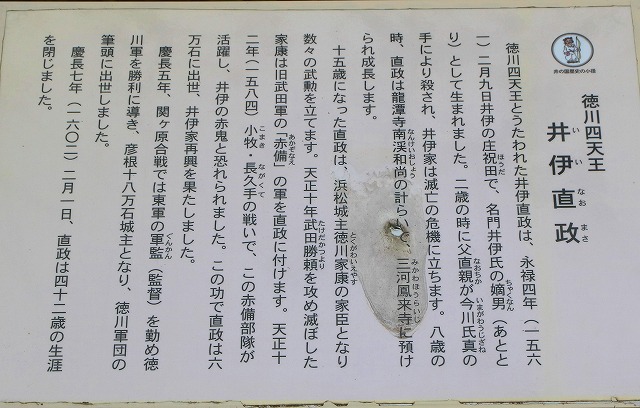 井の國歴史の小径
徳川四天王
井伊直政
いいなおまさ
徳川四天王とうたわれた井伊直政は、永禄四年（一五六
一）二月九日井伊の庄祝田で、名門井伊氏の嫡男（あとと
り）として生まれました。二歳の時に父直親が今川氏真の
手により殺され、井伊家は滅亡の危機に立ちます。八歳の
時、直政は龍潭寺南渓和尚の計らいで、三河鳳来寺に預け
られ成長します。
十五歳になった直政は、浜松城主徳川家康の家臣となり
数々の武勲を立てます。天正十年武田勝頼を攻め滅ぼした
家康は旧武田軍の「赤備」の軍を直政に付けます。天正十
二年（一五八四）小牧・長久手の戦いで、この赤備部隊が
活躍し、井伊の赤鬼と恐れられました。この功で直政は六
万石に出世、井伊家再興を果たしました。
慶長五年、関ヶ原合戦では東軍の軍監（監督）を勤め徳
川軍を勝利に導き、彦根十八万石城主となり、徳川軍団の
筆頭に出世しました。
慶長七年（一六〇二）二月一日、直政は四十二歳の生涯
を閉じました。